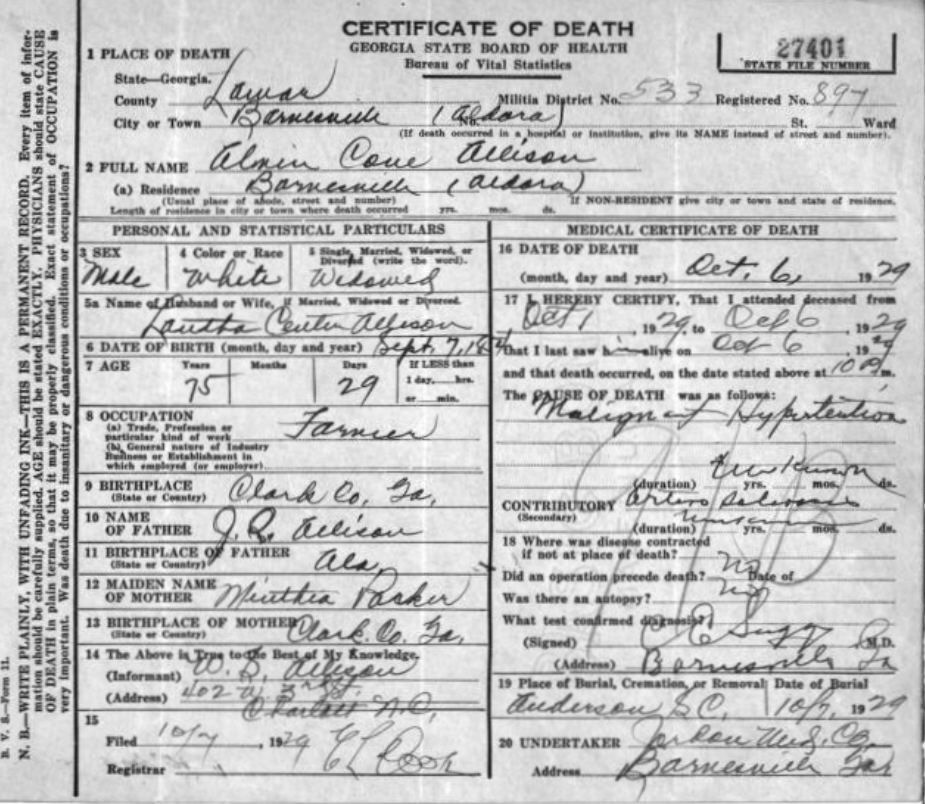 CERTIFICATE OF DEATH
GEORGIA STATE BOARD OF HEALTH
Bureau of Vital Statistics
27401
STATE FILE NUMBER
1 PLACE OF DEATH
State—Georgia.
County Lamar Militia District No. 533 Registered No. 897
City or Town Barnesville (Aldora) No. St. Ward
(If death occurred in a hospital or institution, give its NAME instead of street and number).
2 FULL NAME Almin Cone Allison
(a) Residence Barnesville (Aldora)
(Usual place of abode, street and number) If NON-RESIDENT give city or town and state of residence.
Length of residence in city or town where death occurred yrs. mos. ds.
PERSONAL AND STATISTICAL PARTICULARS
3 SEX 4 Color or Race 5 Single, Married, Widowed, or
Divorced (write the word).
Male White Widowed
5a Name of Husband or Wife, if Married, Widowed or Divorced.
Allison
6 DATE OF BIRTH (month, day and year) Sept. 7, 
7 AGE Years Months Days If LESS than
1 day, hrs.
or min.
75 29
8 OCCUPATION
(a) Trade, Profession or
particular kind of work Farmer
(b) General nature of Industry
Business or Establishment in
which employed (or employer).
9 BIRTHPLACE Clark Co, Ga,
(State or Country)
10 NAME
OF FATHER J. R. Allison
11 BIRTHPLACE OF FATHER Ala,
(State or Country)
12 MAIDEN NAME
OF MOTHER Minthia Parker
13 BIRTHPLACE OF MOTHER Clark. Co. Ga,
(State or Country)
14 The Above is True to the Best of My Knowledge.
(Informant) Allison
(Address) 402 W. 3rd St.
Charlott N.C,
15
Filed 10/7, 1929 Cook
Registrar
MEDICAL CERTIFICATE OF DEATH
16 DATE OF DEATH
(month, day and year) Oct. 6, 1929
17 I HEREBY CERTIFY, That I attended deceased from
Oct 1, 1929, to Oct 6, 1929
that I last saw him alive on Oct 6, 1929
and that death occurred, on the date stated above at 10 m.
The CAUSE OF DEATH was as follows:
Malignant Hypertention
unknown
(duration) yrs. mos. ds.
CONTRIBUTORY
(Secondary)
(duration) yrs. mos. ds.
18 Where was disease contracted
if not at place of death?
Did an operation precede death? No Date of
Was there an autopsy? No
What test confirmed diagnosis?
(Signed) Suggs, M.D.
(Address) Barnesville Ga
19 Place of Burial, Cremation, or Removal Date of Burial
Anderson S.C. 10/7, 1929
20 UNDERTAKER Jordan Und. Co,
Address Barnesville Ga
B. V. S.—Form 11.
N. B.—WRITE PLAINLY, WITH UNFADING INK—THIS IS A PERMANENT RECORD. Every item of infor-
mation should be carefully supplied. AGE should be stated EXACTLY. PHYSICIANS should state CAUSE
OF DEATH in plain terms, so that it may be properly classified. Exact statement of OCCUPATION is
very important. Was death due to insanitary or dangerous conditions or occupations?